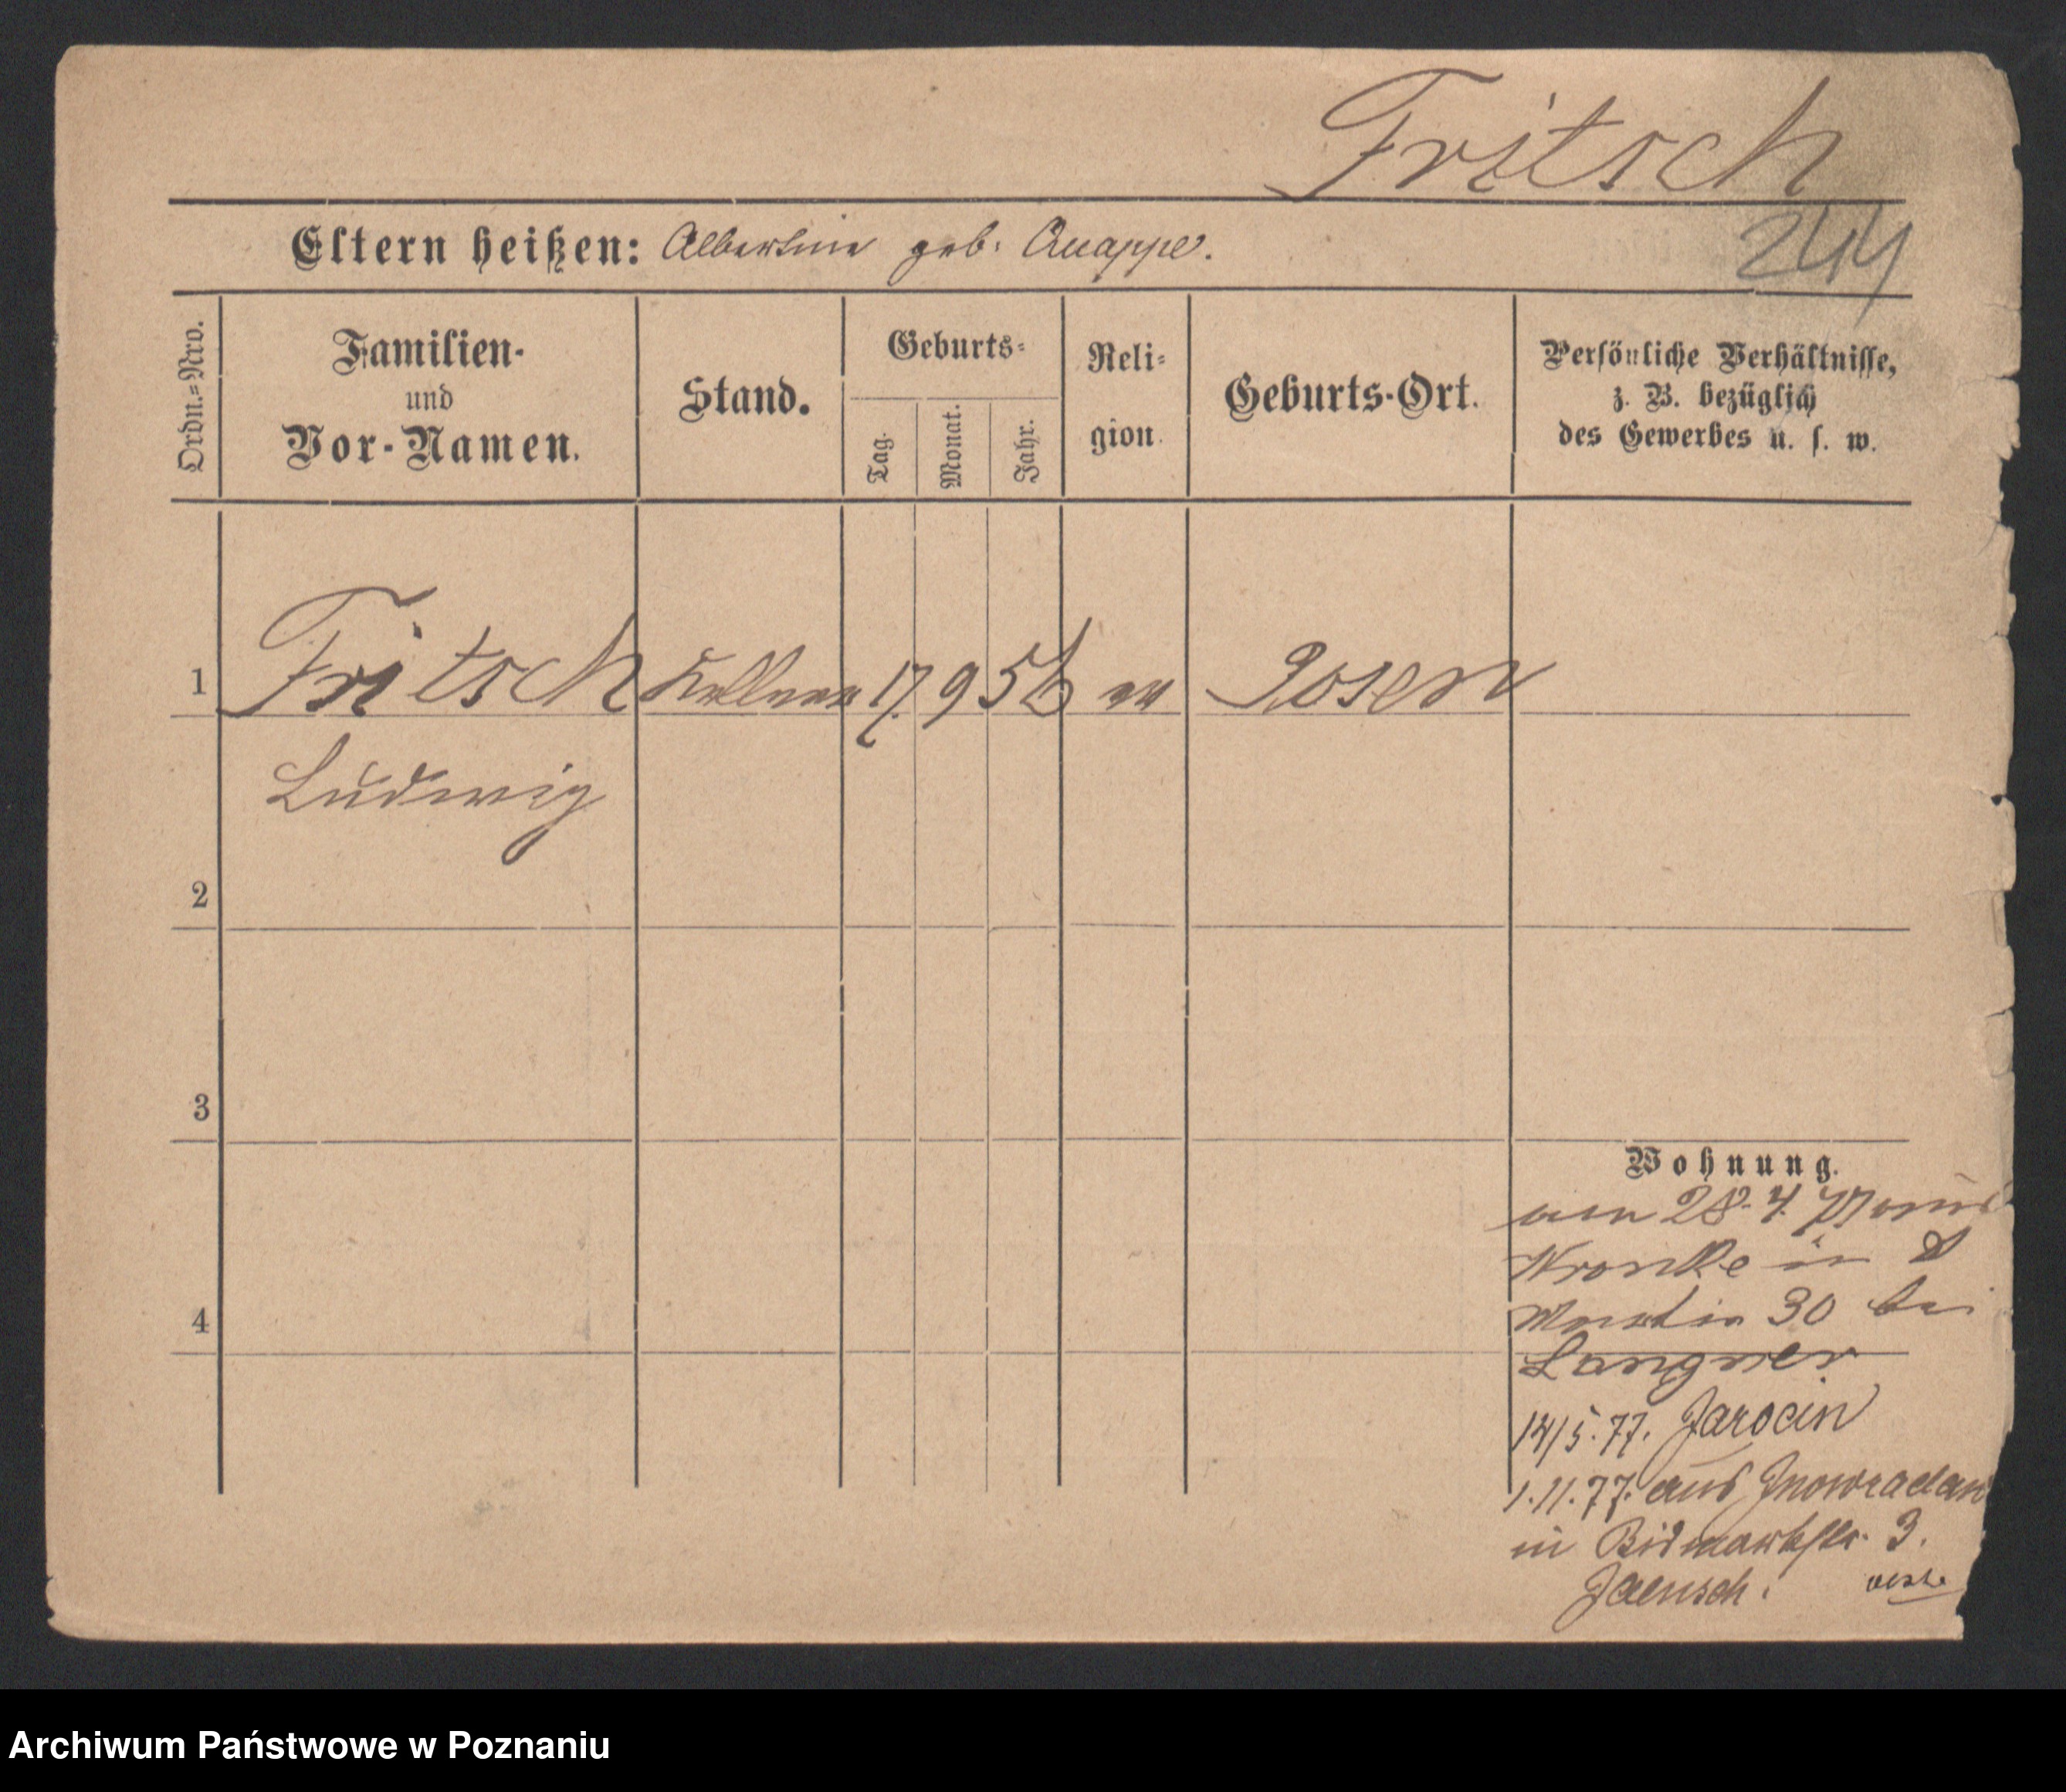 Fritsch
244
Eltern heißen: Albertine geb. Quappe.
Ordn.=Nro.
Familien-
und
Vor-Namen.
Stand.
Geburts-
Tag.
Monat.
Jahr.
Reli-
gion.
Geburts-Ort.
Persönliche Verhältnisse,
z. B. bezüglich
des Gewerbes u. s. w.
1 Fritsch Kellner 17. 9 56 ev Posen
Ludwig
2
3
4
Wohnung.
am 28. 4. 77 aus
Wronke in St
Martin 30 bei
Langner
14/5. 77. Jarocin
1. 11. 77. aus Inowraclaw
in Bismarkstr. 3.
Jaensch.
Archiwum Państwowe w Poznaniu